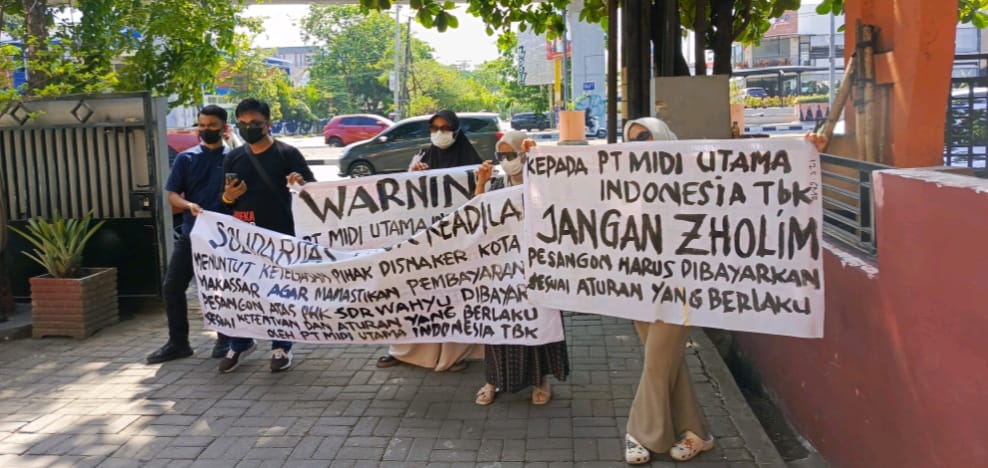 WARNIN
PT MIDI UTAMA IN
SOLIDARITA
KEADILA
MENUNTUT KETEGASAN PIHAK DISNAKER KOTA
MAKASSAR AGAR MEMASTIKAN PEMBAYARAN
PESANGON ATAS PHK SDR WAHYU DIBAYAR
SESUAI KETENTUAN DAN ATURAN YANG BERLAKU
OLEH PT MIDI UTAMA INDONESIA TBK
KEPADA PT MIDI UTAMA
INDONESIA TBK
JANGAN ZHOLIM
PESANGON HARUS DIBAYARKAN
SESUAI ATURAN YANG BERLAKU